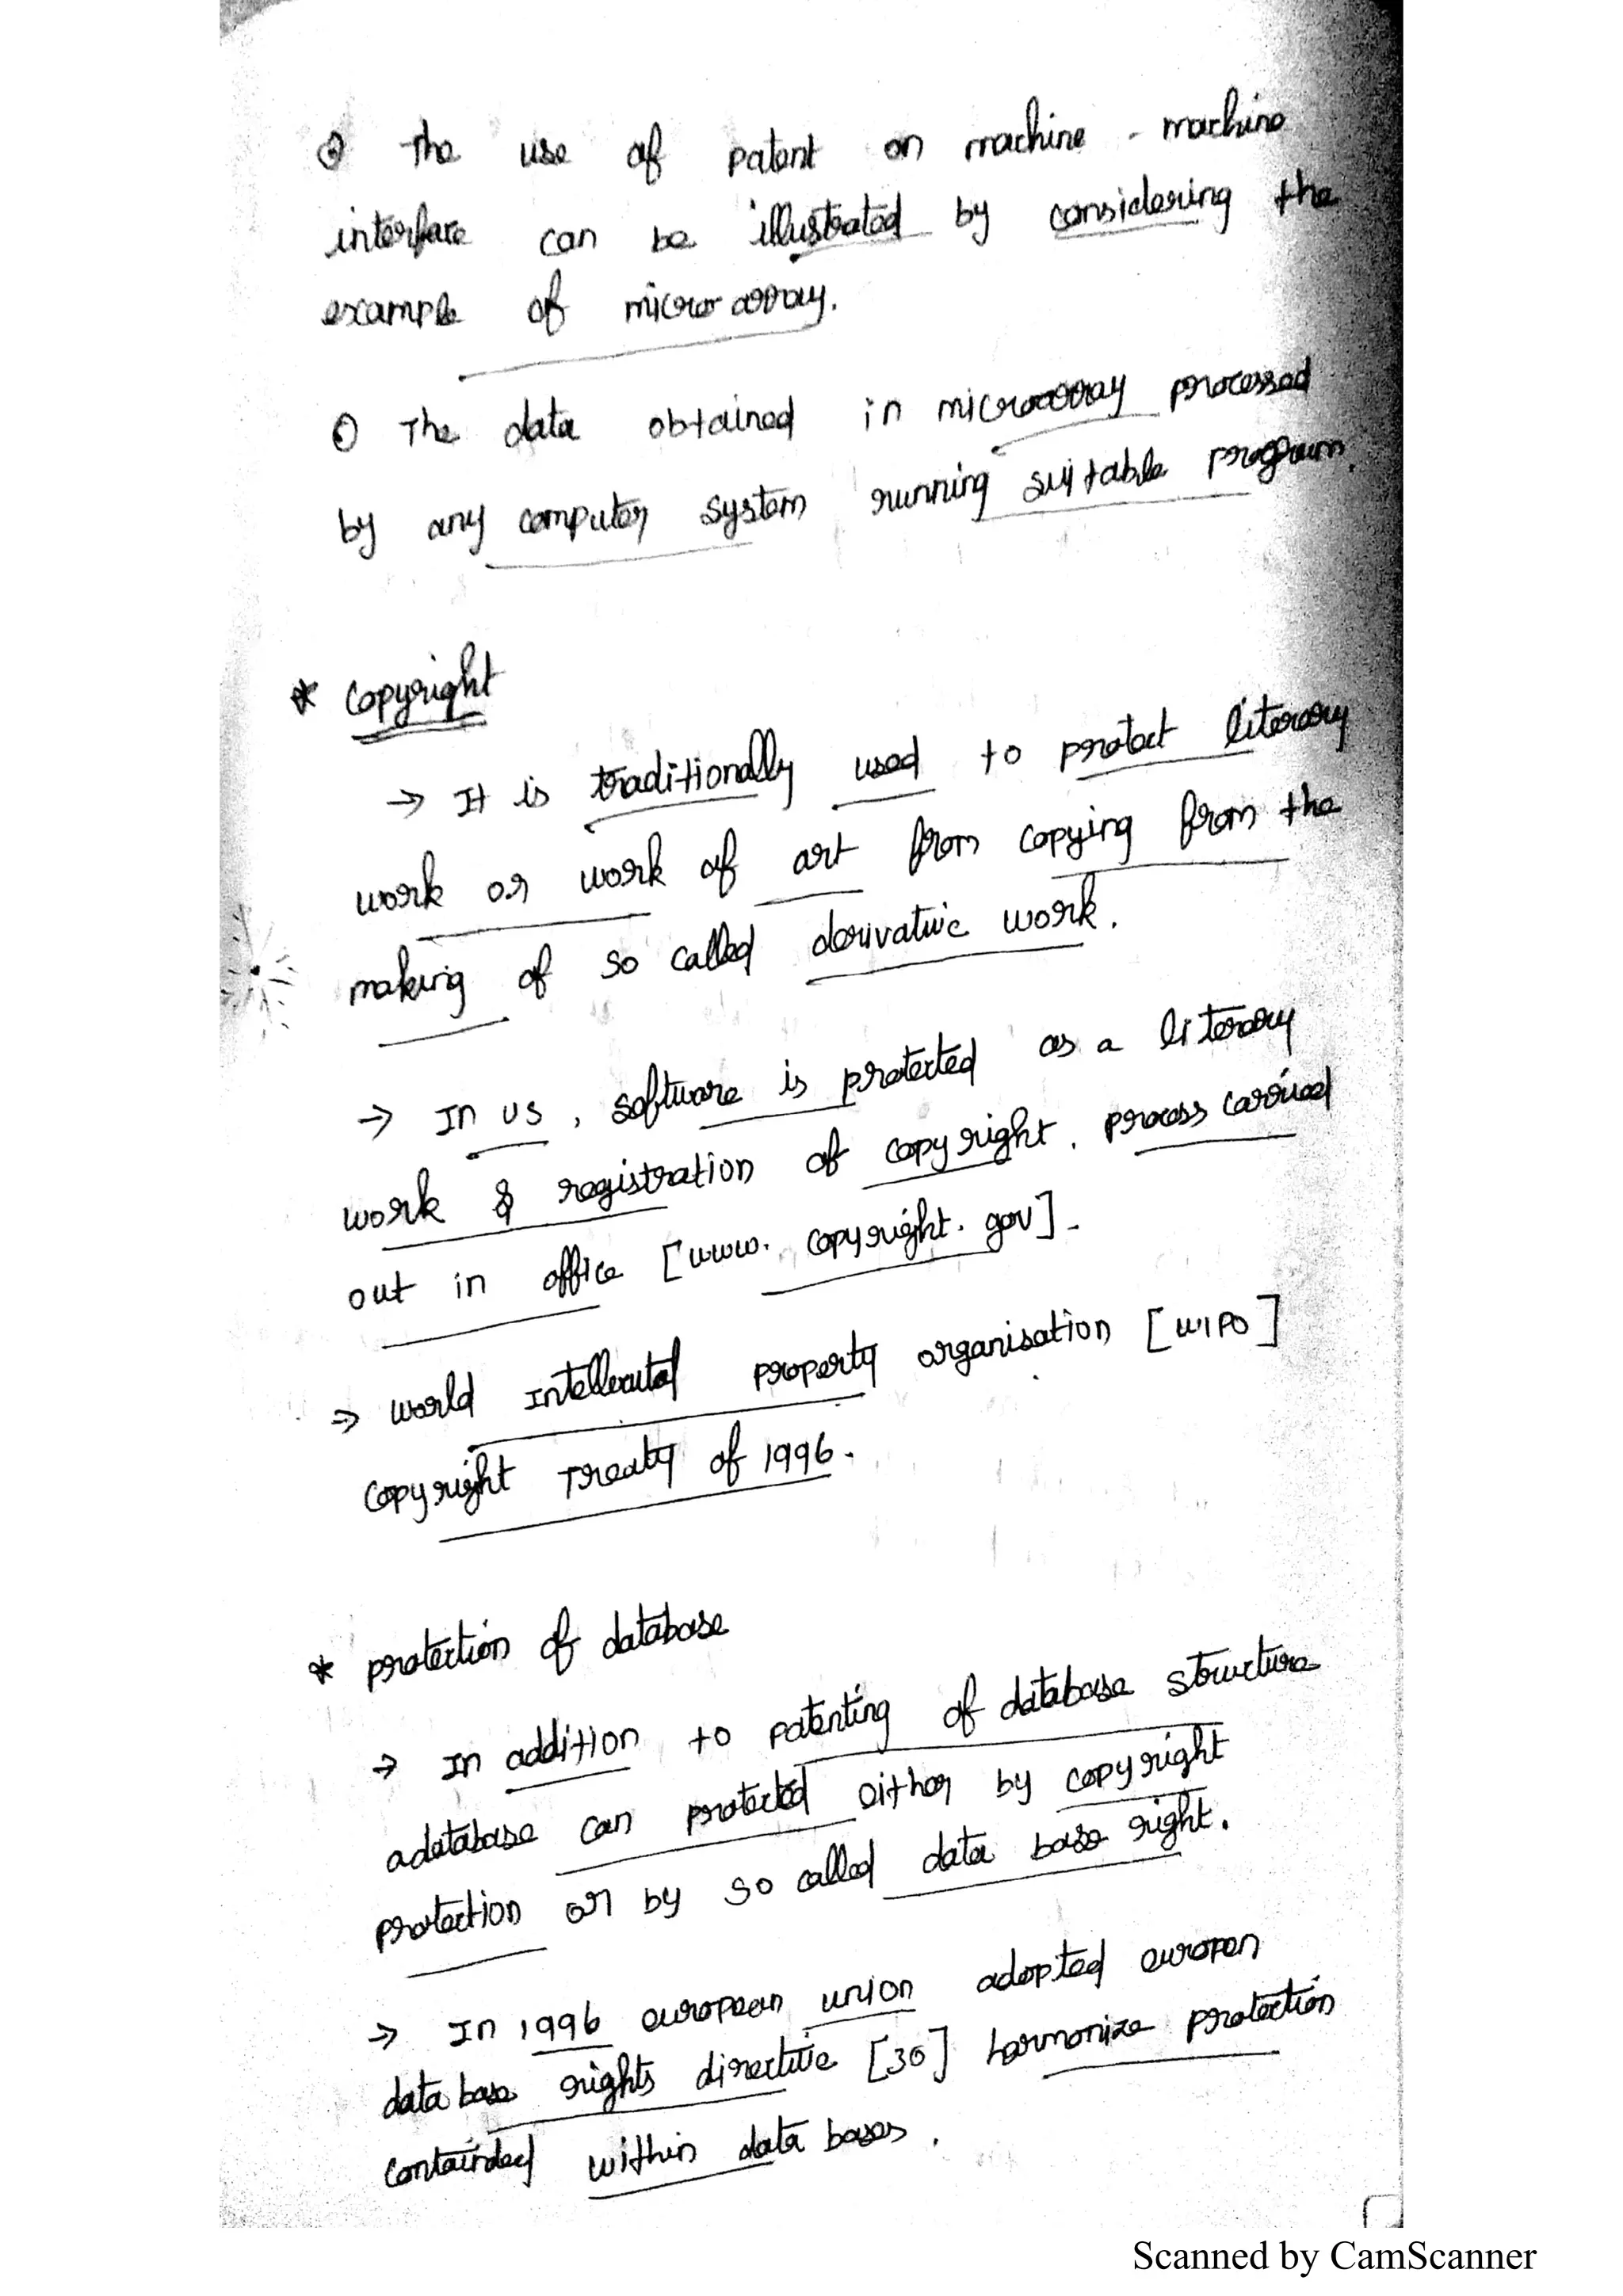 The use of patent on machine - machine
interface can be illustrated by considering the
example of micro array.
The data obtained in microarray processed
by any computer system running suitable program.
* Copyright
→ It is traditionally used to protect literary
work or work of art from copying from the
making of so called derivative work.
→ In US, software is protected as a literary
work & registration of copyright. process carried
out in office [www. copyright. gov].
→ world Intellectual property organisation [WIPO]
copyright Treaty of 1996.
* protection of database
→ In addition to patenting of database structure
a database can protected either by copyright
protection or by so called data base right.
→ In 1996 european union adopted europen
data base rights directive [30] harmonize protection
containded within data bases.
Scanned by CamScanner